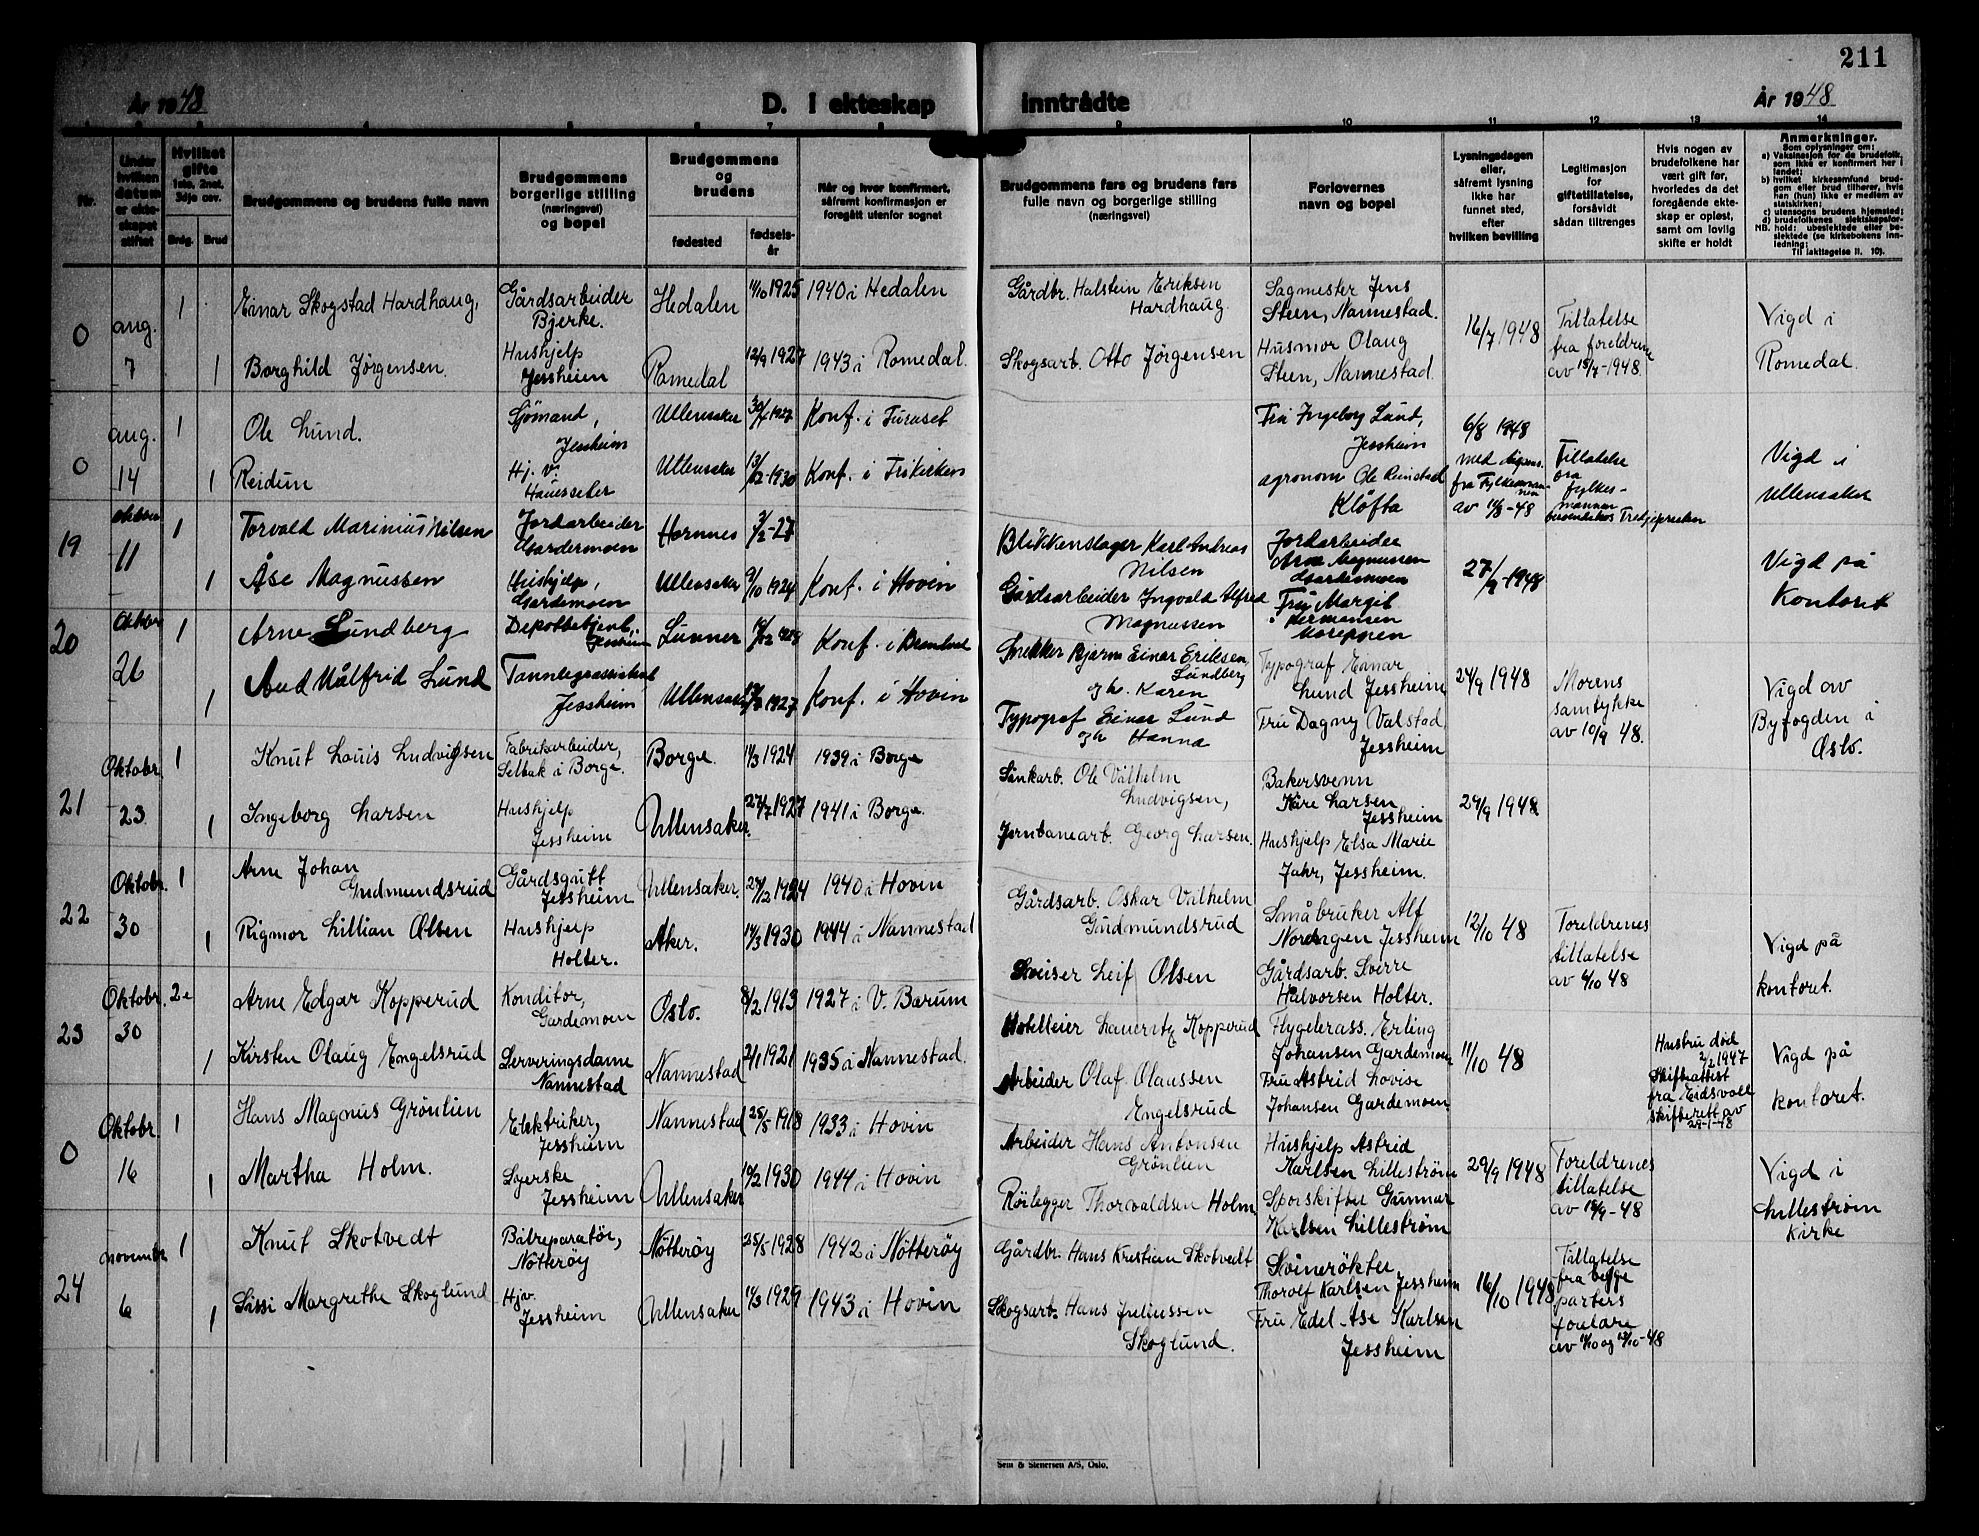 211
År 1948
D. I ekteskap inntrådte
År 1948
1 2 3 4 5 6 7 8 9 10 11 12 13 14
Nr.
Under hvilken datum er ekteskapet stiftet
Hvilket gifte 1ste, 2net, 3dje osv.
Brdg.
Brud
Brudgommens og brudens fulle navn
Brudgommens borgerlige stilling (næringsvei) og bopel
Brudgommens og brudens
fødested
fødselsår
Når og hvor konfirmert, såfremt konfirmasjon er foregått utenfor sognet
Brudgommens fars og brudens fars fulle navn og borgerlige stilling (næringsvei)
Forlovernes navn og bopel
Lysningsdagen eller, såfremt lysning ikke har funnet sted, efter hvilken bevilling
Legitimasjon for giftetillatelse, forsåvidt sådan tiltrenges
Hvis nogen av brudefolkene har vært gift før, hvorledes da det foregående ekteskap er opløst, samt om lovlig skifte er holdt
Anmerkninger.
Som oplysninger om:
a) Vaksinasjon for de brudefolk, som ikke er konfirmert her i landet;
b) hvilket kirkesamfund brudgom eller brud tilhører, hvis han (hun) ikke er medlem av statskirken;
c) utensogns brudens hjemsted;
d) brudefolkenes slektskapsforhold: ubeslektede eller beslektede (se kirkebokens innledning;
NB.
Til iakttagelse II. 10).
0 aug. 7
1 Einar Skogstad Hardhaug, Gårdsarbeider Bjerke. Hedalen 11/10 1925 1940 i Hedalen
Gårdbr. Halstein Eriksen Hardhaug
Sagmester Jens Steen, Nannestad.
1 Borghild Jørgensen. Hushjelp Jessheim Romedal 12/9 1927 1943 i Romedal.
Skogsarb. Otto Jørgensen
Husmor Olaug Steen, Nannestad.
16/7 1948
Tillatelse fra foreldrene av 15/7-1948.
Vigd i Romedal.
0 aug. 14
1 Ole Lund. Sjømand, Jessheim Ullensaker 1927 Konf. i Furuset
Fru Ingeborg Lund, Jessheim
1 Reidun Hj. v. Ullensaker 1930 Konf. i Frikirken
agronom Ole Kløfta
6/8 1948 med fra Fylkesmannen av 11/8-48
Tillatelse fra fylkesmannen
Vigd i Ullensaker
19 oktober 11
1 Torvald Marinius Nilsen Jordarbeider Gardermoen Hornnes 3/2-27
Blikkenslager Karl Andreas Nilsen
Jordarbeider Arne Magnussen Gardermoen
1 Åse Magnussen Hushjelp, Gardemoen Ullensaker 9/10 1924 Konf. i Hovin
Gårdsarbeider Ingvald Alfred Magnussen
Fru Margit Hermansen Moreppen
27/9-1948
Vigd på Kontoret
20 Oktober 26
1 Arne Lundberg Depotbetjent, Jessheim Lunner 1928 Konf. i Brandbu
Snekker Bjarne Einar Eriksen Lundberg gh. Karen
Typograf Einar Lund Jessheim
1 Aud Målfrid Lund Tannlegeassistent Jessheim Ullensaker 1927 Konf. i Hovin
Typograf Einar Lund gh Hanna
Fru Dagny Valstad Jessheim
24/9 1948
Morens samtykke av 10/9 48.
Vigd av Byfogden i Oslo.
21 Oktobr. 23
1 Knut Louis Ludvigsen Fabrikarbeider, Selbak i Borge. Borge. 14/3 1924 1939 i Borge
Sinkarb. Ole Vilhelm Ludvigsen,
Bakersvenn Kåre Larsen Jessheim
1 Ingeborg Larsen Hushjelp Jessheim Ullensaker. 27/7 1927 1941 i Borge.
Jernbanearb. Georg Larsen.
Hushjelp Elsa Marie Jahr, Jessheim.
29/9 1948
22 Oktobr. 30
1 Arne Johan Gudmundsrud Gårdsgutt Jessheim Ullensaker. 27/2 1924 1940 i Hovin
Gårdsarb. Oskar Vilhelm Gudmundsrud
Småbruker Alf Nordengen Jessheim
1 Rigmor Lillian Olsen Hushjelp Holter. Aker. 14/3 1930 1944 i Nannestad
Sveiser Leif Olsen
Gårdsarb. Sverre Halvorsen Holter.
12/10 48
Foreldrenes tillatelse av 4/10 48
Vigd på kontoret.
23 Oktobr. 30
2e Arne Edgar Kopperud Konditor, Gardemoen Oslo. 8/2 1913 1927 i V. Bærum
Hotelleier Lauentz Kopperud
Flygelerass. Erling Johansen Gardemoen
1 Kirsten Olaug Engelsrud Serveringsdame Nannestad Nannestad 2/1 1921 1935 i Nannestad.
Arbeider Olaf Olaussen Engelsrud
Fru Astrid Lovise Johansen Gardemoen.
11/10 48
Hustru död 2/2 1947 Skifteattest fra Eidsvoll skifterett av 29-1-48
Vigd på kontoret.
0 Oktobr. 16
1 Hans Magnus Grönlien Elektriker, Jessheim Nannestad 25/5 1918 1933 i Hovin
Arbeider Hans Antonsen Grönlien
Hushjelp Astrid Karlsen Lilleström
1 Martha Holm. Syerske Jessheim Ullensaker 10/2 1930 1944 i Hovin
Rörlegger Thorvaldsen Holm
Sporskifter Gunnar Karlsen Lilleström
29/9 1948
Foreldrenes tillatelse av 15/9-48
Vigd i Lilleström Kirke
24 novembr. 6
1 Knut Skotvedt Bilreparatör, Nötteröy Nötteröy 25/5 1928 1942 i Nötteröy
Gårdbr. Hans Kristian Skotvedt
Svinerökter Thorolf Karlsen Jessheim
1 Sissi Margrethe Skoglund Hjv. Jessheim Ullensaker 14/3 1929 1943 i Hovin
Skogsarb. Hans Juliussen Skoglund.
Fru Edel Åse Karlsen Jessheim
16/10 1948
Tillatelse fra begge parters foreldre av 11/10 og 13/10-48
Sem & Stenersen A/S, Oslo.